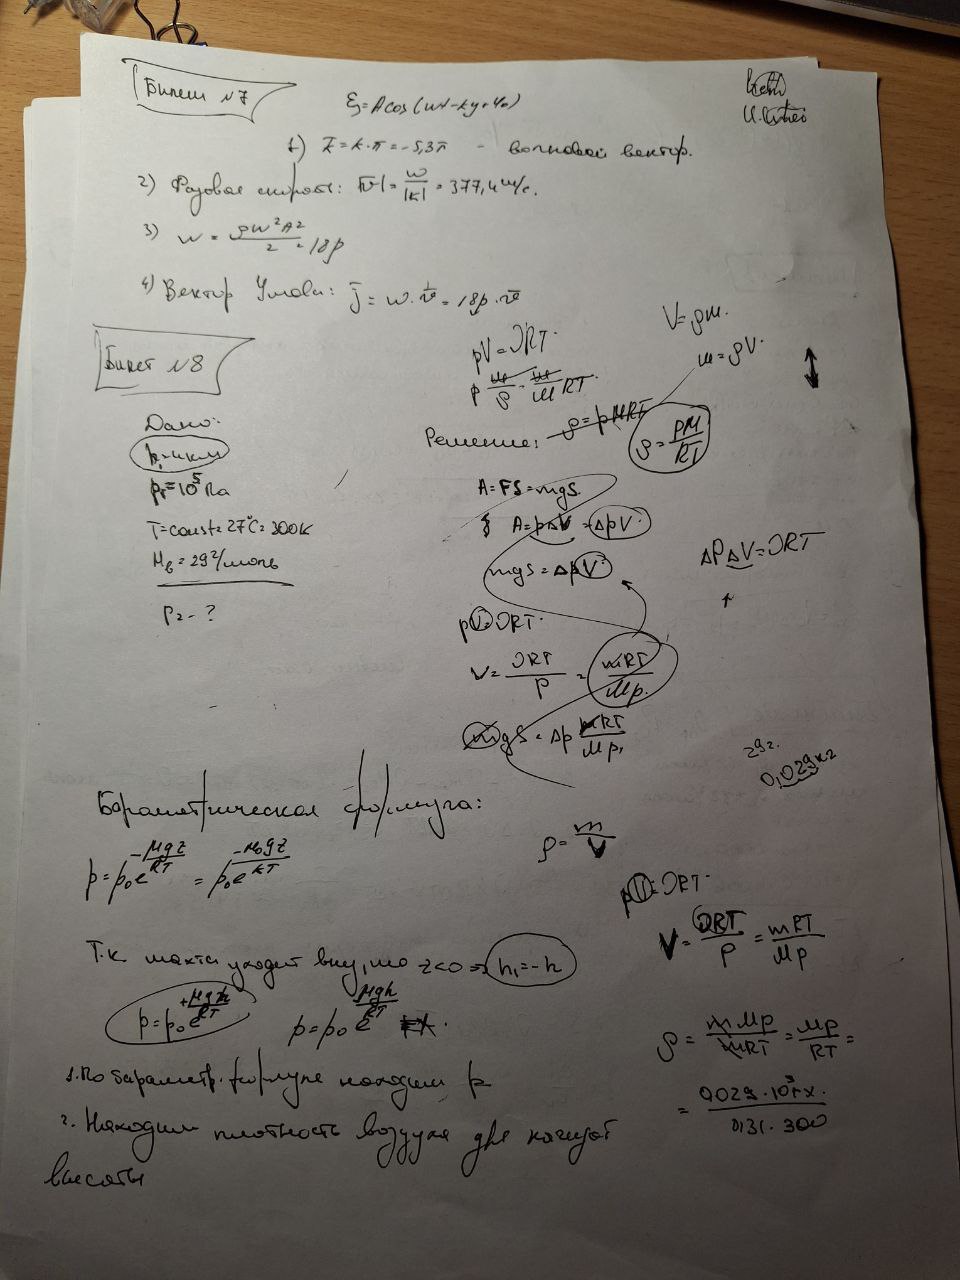 Билет №7
ξ = A cos(ωt - ky + φ₀)
1) k⃗ = k·n⃗ = -5,3n⃗ - волновой вектор.
2) Фазовая скорость: |v⃗| = ω/|k| = 377,4 м/с.
3) w = ρω²A²/2 = 18ρ
4) Вектор Умова: j⃗ = w·v⃗ = 18ρ·v⃗
Билет №8
Дано:
p₁=10⁵ Па
T=const=27°C=300K
Mв = 29 г/моль
p₂ - ?
V=ρm.
pV=νRT.
m=ρV.
p m/ρ = m/M RT.
Решение:
ρ=pMRT
ρ = pM/RT
A=FS=mgS.
A=pΔV = ΔpV.
mgS = ΔpV
ΔPΔV=νRT
pV=νRT.
V = νRT/p = mRT/Mp.
mgS = Δp mRT/Mp₁
29г.
0,029кг
Барометрическая формула:
p = p₀e^(-Mgz/RT) = p₀e^(-m₀gz/kT)
ρ = m/V
pV=νRT.
V = νRT/p = mRT/Mp
Т.к. шахта уходит вниз, то z<0 ⇒ h₁=-h
p=p₀e^(+Mgh/RT)
p=p₀e^(Mgh/RT)
ρ = mMp/mRT = Mp/RT =
1. По барометр. формуле находим p
= 0,029·10⁵·/8,31·300
2. Находим плотность воздуха для каждой
высоты